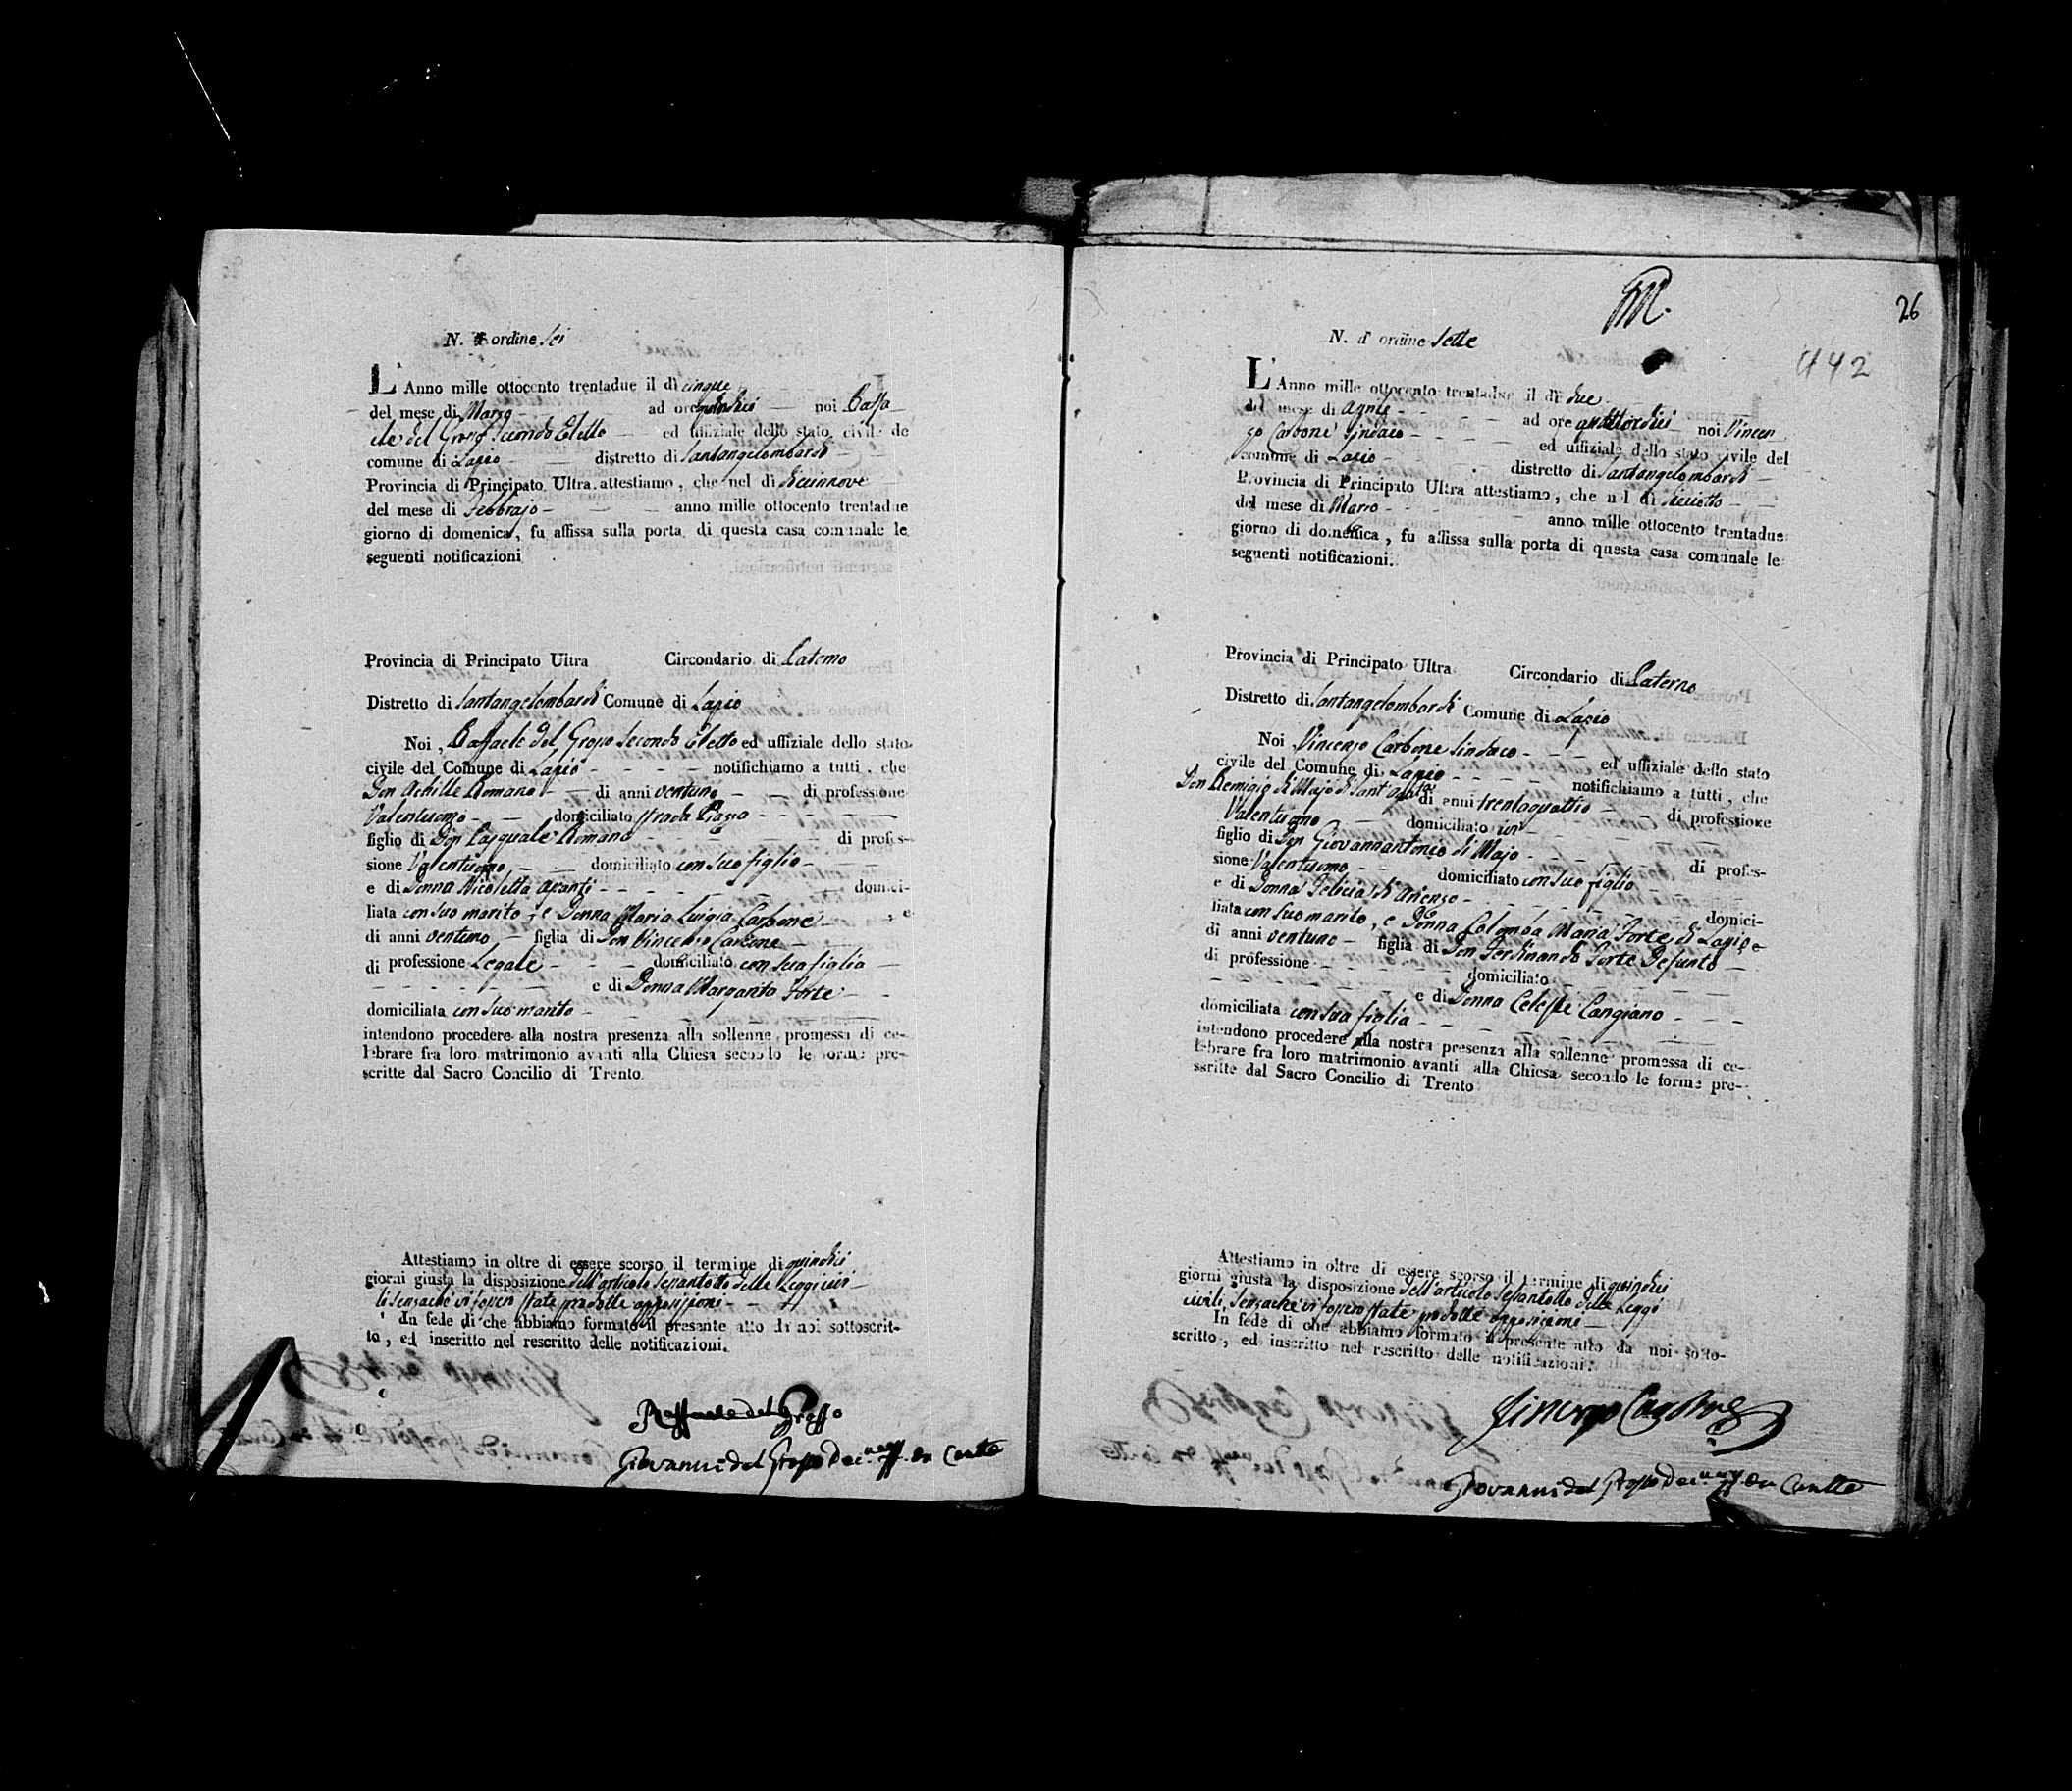 N. d'ordine Sei
L'Anno mille ottocento trentadue il dì cinque
del mese di Marzo ad ore noi Raffa
ele del Grosso Secondo Eletto ed uffiziale dello stato civile de
comune di Lapio distretto di Santangelombardi
Provincia di Principato Ultra attestiamo, che nel dì diecinnove
del mese di Febbrajo anno mille ottocento trentadue
giorno di domenica, fu affissa sulla porta di questa casa comunale le
seguenti notificazioni
Provincia di Principato Ultra Circondario di Paterno
Distretto di Santangelombardi Comune di Lapio
Noi, Raffaele del Grosso Secondo Eletto ed uffiziale dello stato
civile del Comune di Lapio notifichiamo a tutti, che
Don Achille Romano di anni ventuno di professione
Valentuomo domiciliato strada Piazza
figlio di Don Pasquale Romano di profes-
sione Valentuomo domiciliato con suo figlio
e di Donna Nicoletta domici-
liata con suo marito, e Donna Maria Luigia Carbone, e
di anni ventuno figlia di Don Vincenzo Carbone
di professione Legale domiciliato con sua figlia
e di Donna Margarita Forte
domiciliata con suo marito
intendono procedere alla nostra presenza alla sollenne promessa di ce-
lebrare fra loro matrimonio avanti alla Chiesa secondo le forme pre-
scritte dal Sacro Concilio di Trento
Attestiamo in oltre di essere scorso il termine di quindici
giorni giusta la disposizione dell'articolo sessantotto delle Leggi civi
li senzacché vi fossero state prodotte opposizioni
In fede di che abbiamo formato il presente atto da noi sottoscrit-
to, ed inscritto nel rescritto delle notificazioni.
Raffaele del Grosso
Giovanni del Grosso
26
442
N. d'ordine Sette
L'Anno mille ottocento trentadue il dì due
del mese di Aprile ad ore quattordici noi Vincen
zo Carbone Sindaco ed uffiziale dello stato civile del
comune di Lapio distretto di Santangelombardi
Provincia di Principato Ultra attestiamo, che nel dì dieciotto
del mese di Marzo anno mille ottocento trentadue
giorno di domenica, fu affissa sulla porta di questa casa comunale le
seguenti notificazioni.
Provincia di Principato Ultra Circondario di Paterno
Distretto di Santangelombardi Comune di Lapio
Noi Vincenzo Carbone Sindaco ed uffiziale dello stato
civile del Comune di Lapio notifichiamo a tutti, che
Don Remigio di Majo di di anni trentaquattro di professione
Valentuomo domiciliato ivi
figlio di Don Giovannantonio di Majo di profes-
sione Valentuomo domiciliato con suo figlio
e di Donna Felicia di Arienzo domici-
liata con suo marito, e Donna Colomba Maria Forte di Lapio e
di anni ventuno figlia di Don Ferdinando Forte Defunto
di professione domiciliato
e di Donna Celeste Cangiano
domiciliata con sua figlia
intendono procedere alla nostra presenza alla sollenne promessa di ce-
lebrare fra loro matrimonio avanti alla Chiesa secondo le forme pre-
scritte dal Sacro Concilio di Trento
Attestiamo in oltre di essere scorso il termine di quindici
giorni giusta la disposizione dell'articolo sessantotto delle Leggi
civili, senzacché vi fossero state prodotte opposizioni
In fede di che abbiamo formato il presente atto da noi sotto-
scritto, ed inscritto nel rescritto delle notificazioni.
Vincenzo Carbone
Giovanni del Grosso